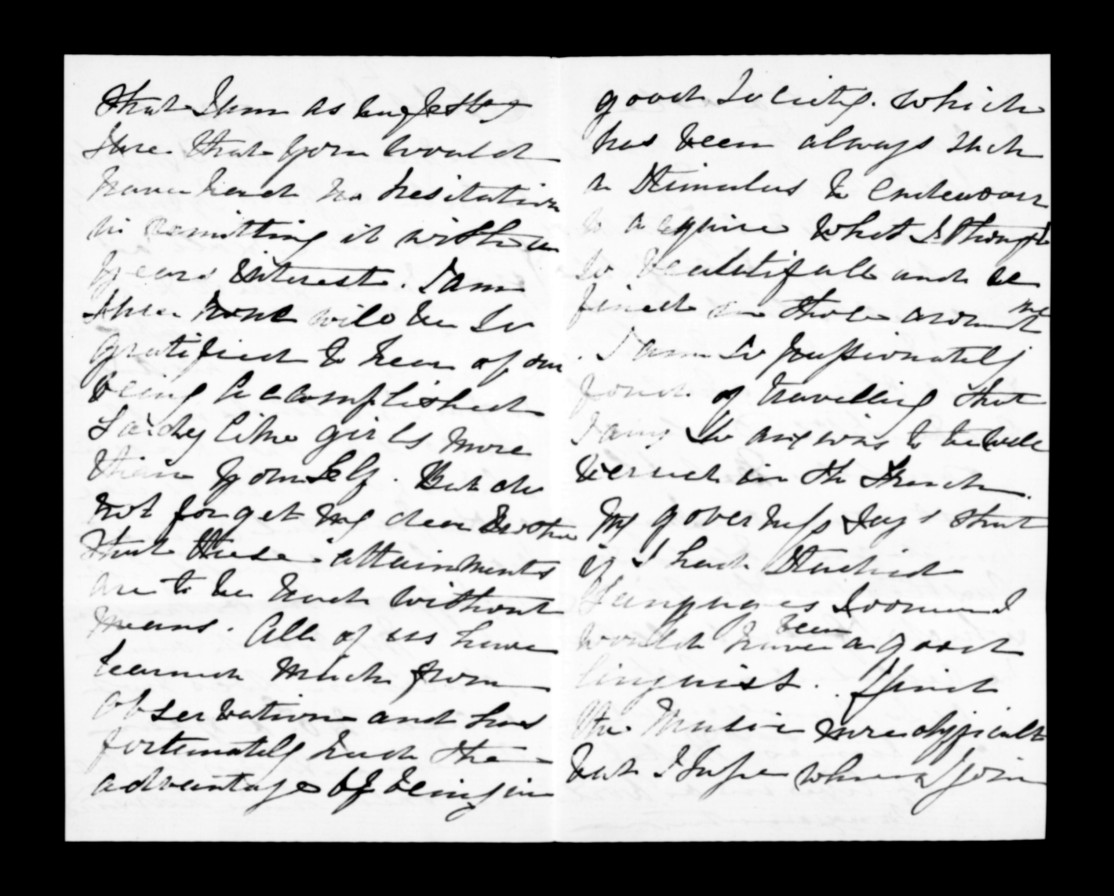 that I am as perfectly
sure that you would
have had no hesitation
in remitting it with
years interest. I am
sure none will be so
gratified to hear of our
being accomplished
Lady like girls more
than yourself. But do
not forget my dear
that these attainments
are to be had without
means. All of us have
learned much from
observation and have
fortunately had the
advantage of being in
good Society. which
has been always such
a Stimulus to endeavour
to acquire what I thought
so beautiful and re
fined in those around me
. I am so passionately
fond of travelling that
I am so anxious to be well
versed in the French.
My governess says that
if I had Studied
Languages Soon I
would have been a good
linguist. I find
the Music more difficult
but I hope when I join